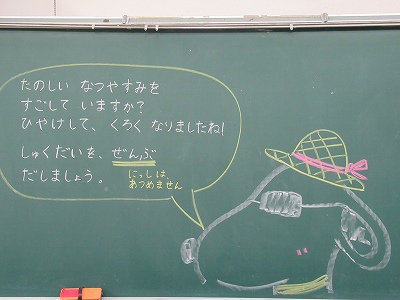 たのしい なつやすみを
すごして いますか?
ひやけして、くろく なりましたね!
しゅくだいを、ぜんぶ
だしましょう。
にっしは、
あつめません